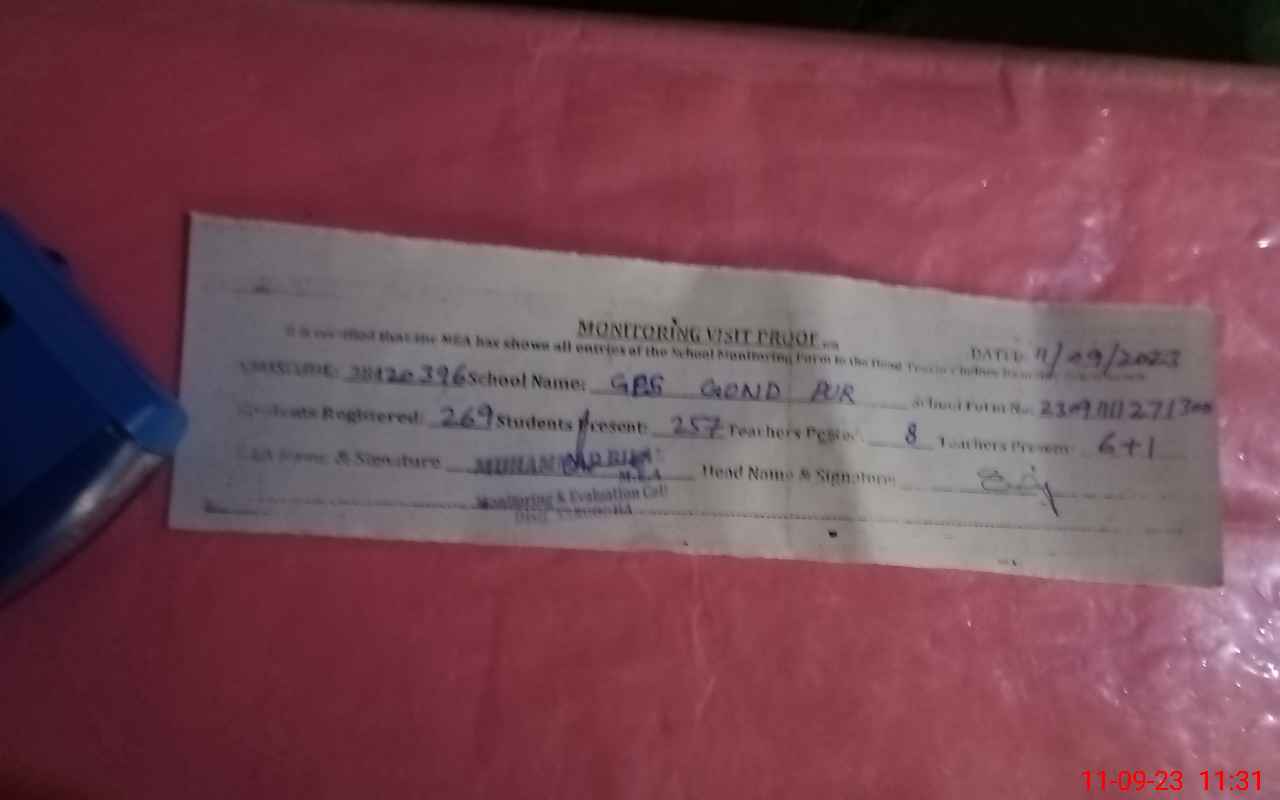 MONITORING VISIT PROOF
DATED: 11/09/2023
It is certified that the MEA has shown all entries of the School Monitoring Form to the Head Teacher before
38420396 School Name: GPS GOND PUR School Form No:
Students Registered: 269 Students Present: 257 Teachers Posted: 8 Teachers Present: 6+1
MEA Name & Signature MUHAMMAD Head Name & Signature
M.E.A
Monitoring & Evaluation Cell
11-09-23 11:31